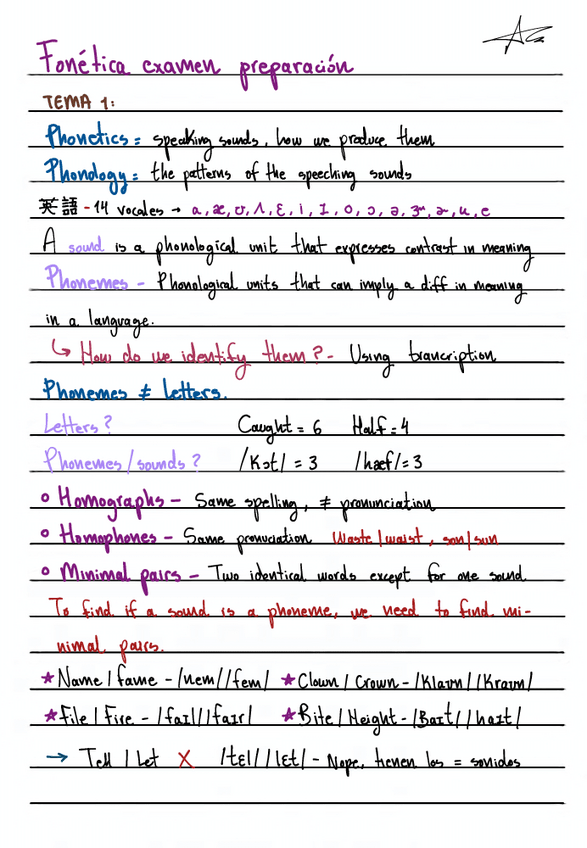 Fonética examen preparación
TEMA 1:
Phonetics = speaking sounds, how we produce them
Phonology = the patterns of the speeching sounds
英語 - 14 vocales → a, æ, ʊ, ʌ, ɛ, i, I, o, ɔ, ə, ɝ, ɚ, u, e
A sound is a phonological unit that expresses contrast in meaning
Phonemes - Phonological units that can imply a diff in meaning
in a language.
↳ How do we identify them ? - Using trancription
Phonemes ≠ letters.
Letters ? Caught = 6 Half = 4
Phonemes / sounds ? /Kɔt/ = 3 /hæf/ = 3
• Homographs - Same spelling, ≠ pronunciation
• Homophones - Same pronuciation Waste / waist, son / sun
• Minimal pairs - Two identical words except for one sound
To find if a sound is a phoneme, we need to find mi-
nimal pairs.
★ Name / fame - /nem/ /fem/ ★ Clown / Crown - /Klaʊn/ /Kraʊn/
★ File / Fire - /faIl/ /faIr/ ★ Bite / Height - /BaIt/ / haIt /
→ Tell / Let X /tɛl/ / lɛt/ - Nope, tienen los = sonidos